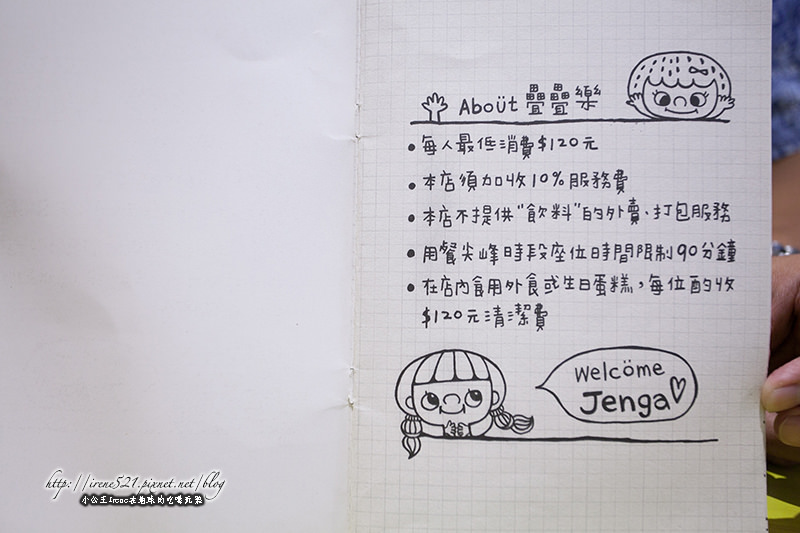 About 疊疊樂
• 每人最低消費$120元
• 本店須加收10%服務費
• 本店不提供"飲料"的外賣、打包服務
• 用餐尖峰時段座位時間限制90分鐘
• 在店內食用外食或生日蛋糕，每位酌收
$120元清潔費
Welcöme
Jenga
http://irene521.pixnet.net/blog
小公主Irene在地球的吃喝玩樂